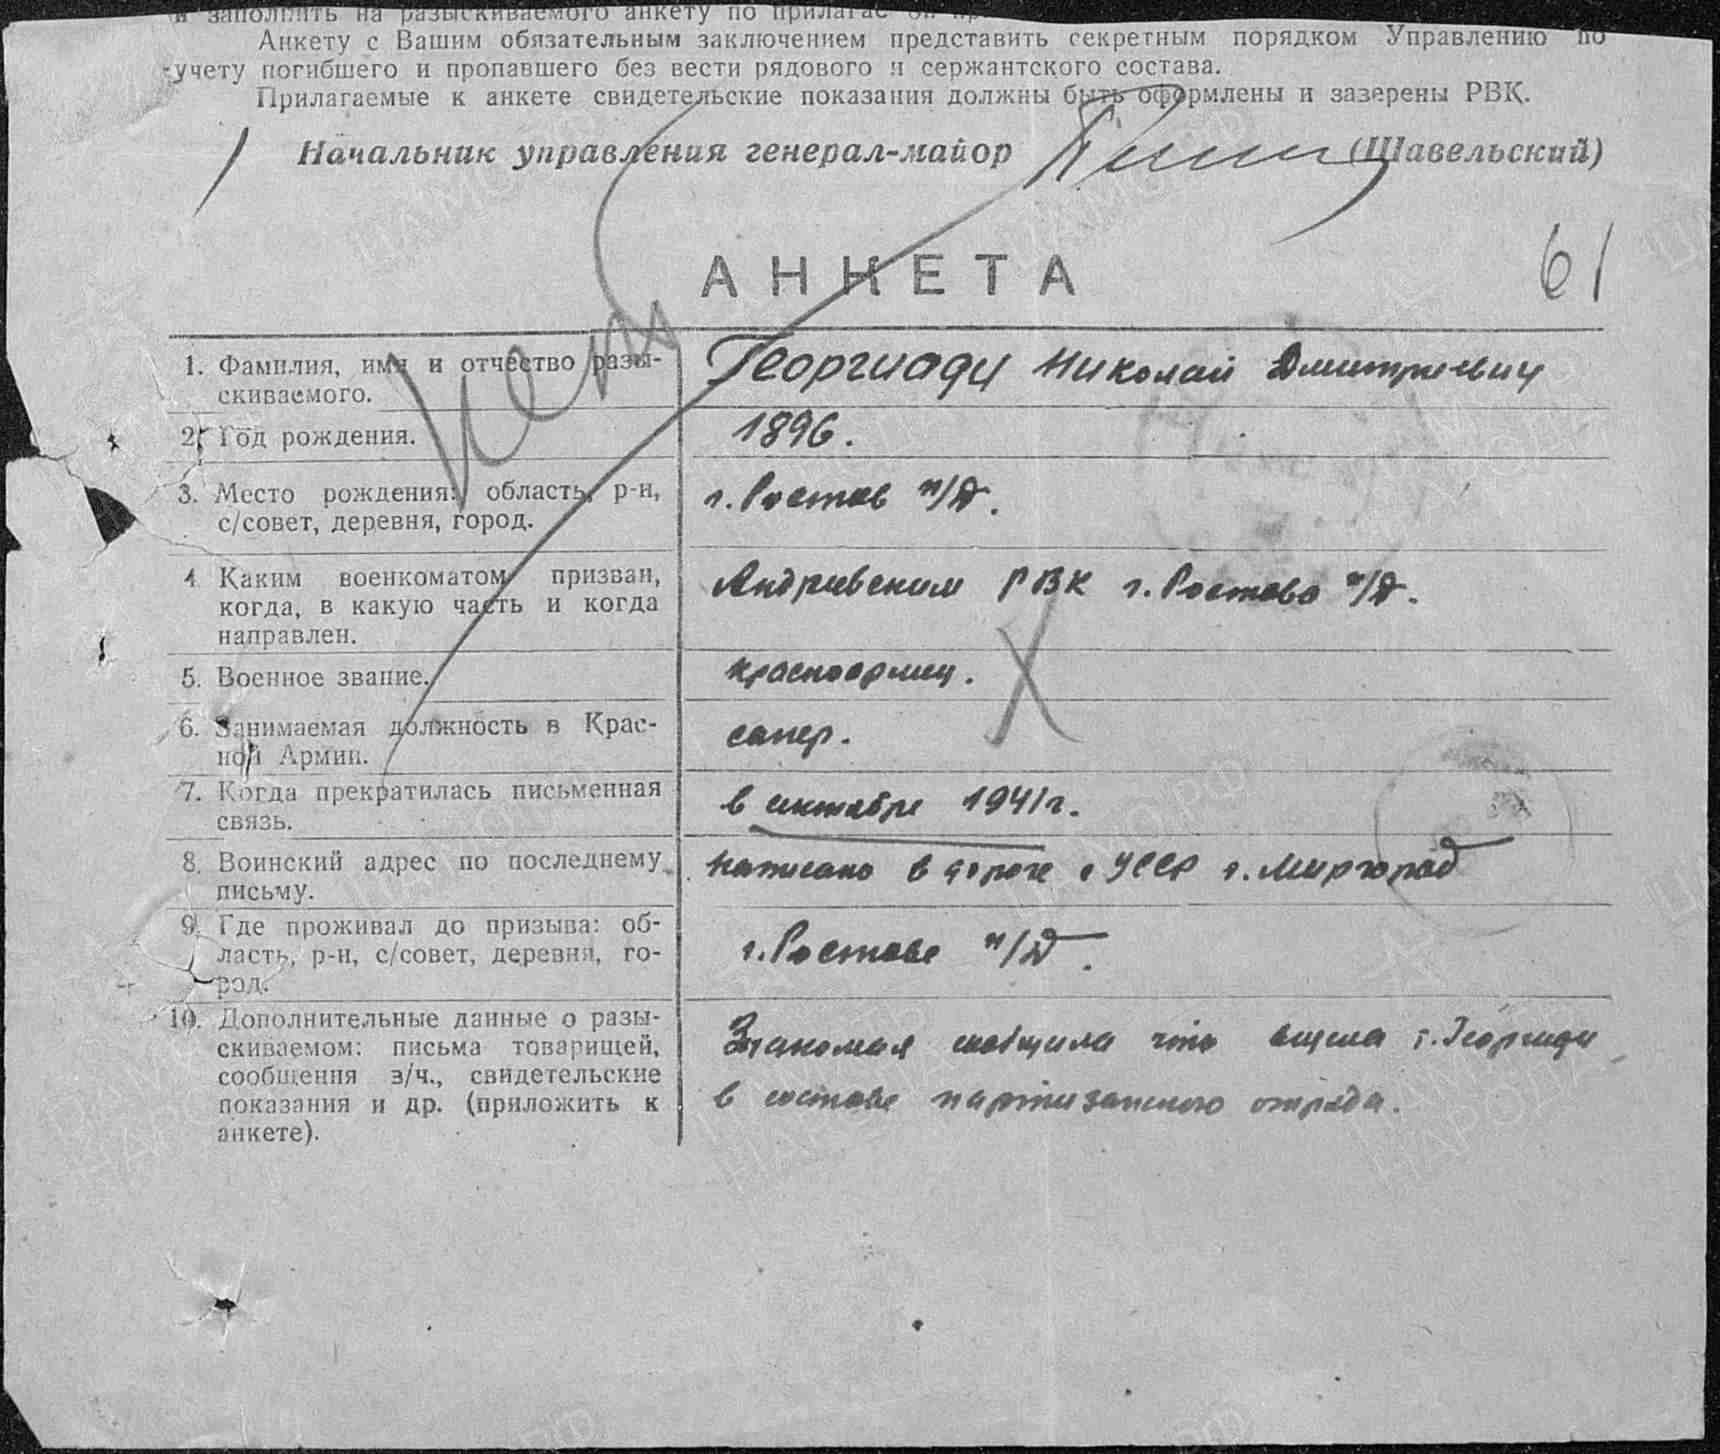 и заполнить на разыскиваемого анкету по
Анкету с Вашим обязательным заключением представить секретным порядком Управлению по
учету погибшего и пропавшего без вести рядового и сержантского состава.
Прилагаемые к анкете свидетельские показания должны быть оформлены и заверены РВК.
Начальник управления генерал-майор (Шавельский)
АНКЕТА
61
1. Фамилия, имя и отчество разы-
скиваемого.
Георгиади Николай Дмитриевич
2. Год рождения.
1896.
3. Место рождения: область, р-н,
с/совет, деревня, город.
г. Ростов н/Д.
4 Каким военкоматом призван,
когда, в какую часть и когда
направлен.
Андреевским РВК г. Ростова н/Д.
5. Военное звание.
красноармеец.
6. Занимаемая должность в Крас-
ной Армии.
сапер.
7. Когда прекратилась письменная
связь.
в октябре 1941 г.
8. Воинский адрес по последнему
письму.
написано в дороге с УССР г. Миргород
9. Где проживал до призыва: об-
ласть, р-н, с/совет, деревня, го-
род.
г. Ростове н/Д.
10. Дополнительные данные о разы-
скиваемом: письма товарищей,
сообщения з/ч., свидетельские
показания и др. (приложить к
анкете).
Знакомая сообщила что видела г. Георгиади
в составе партизанского отряда.
Нет